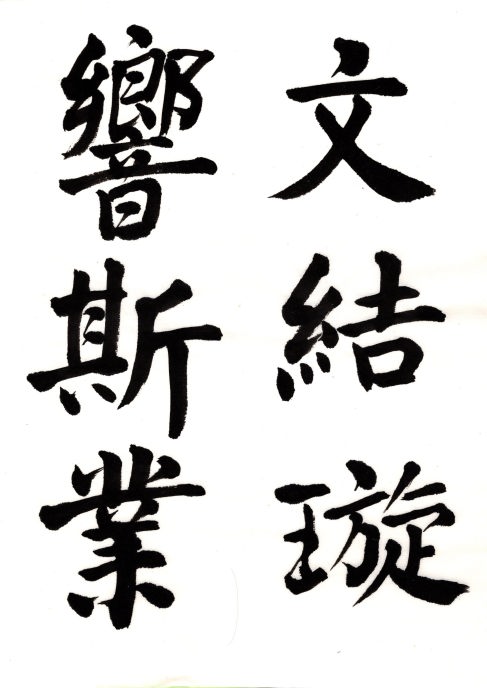 文結璇
響斯業